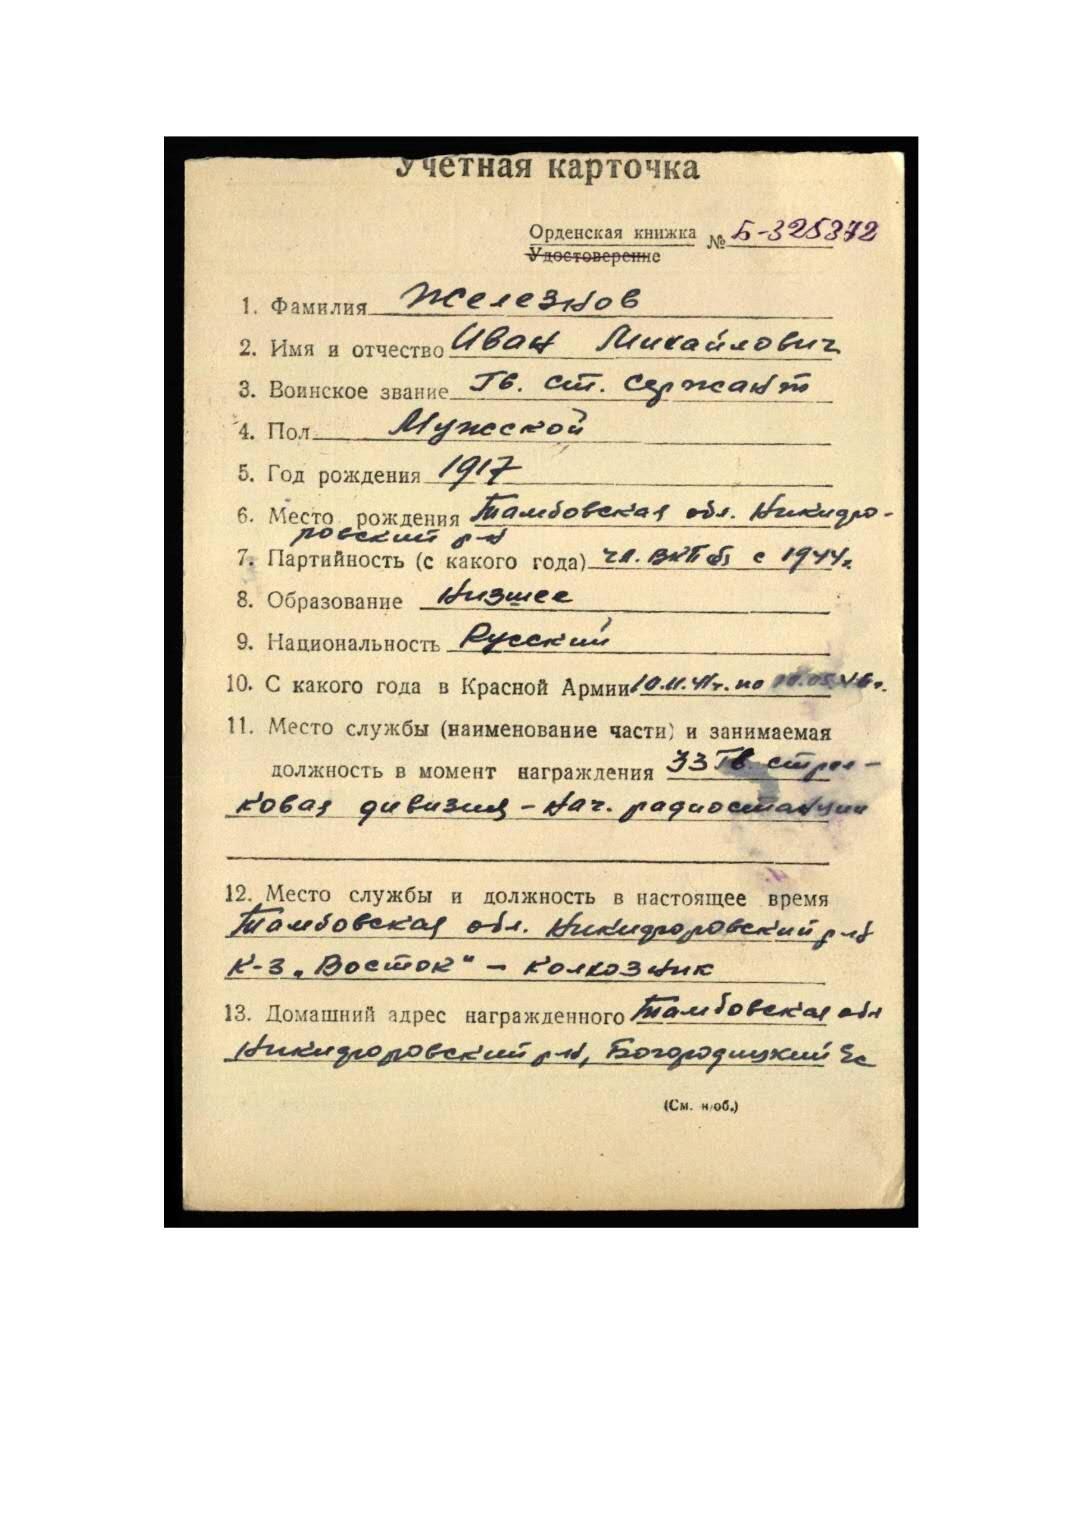 Учетная карточка
Орденская книжка № Б-325372
Удостоверение
1. Фамилия Железнов
2. Имя и отчество Иван Михайлович
3. Воинское звание Гв. ст. сержант
4. Пол Мужской
5. Год рождения 1917
6. Место рождения Тамбовская обл. Никифо-
ровский р-н
7. Партийность (с какого года) чл. ВКП(б) с 1944г.
8. Образование Низшее
9. Национальность Русский
10. С какого года в Красной Армии 10.11.41г. по
11. Место службы (наименование части) и занимаемая
должность в момент награждения 33 Гв. стрел-
ковая дивизия - Нач. радиостанции
12. Место службы и должность в настоящее время
Тамбовская обл. Никифоровский р-н
К-з „Восток" - колхозник
13. Домашний адрес награжденного Тамбовская обл
Никифоровский р-н, Богородицкий с/с
(См. н/об.)